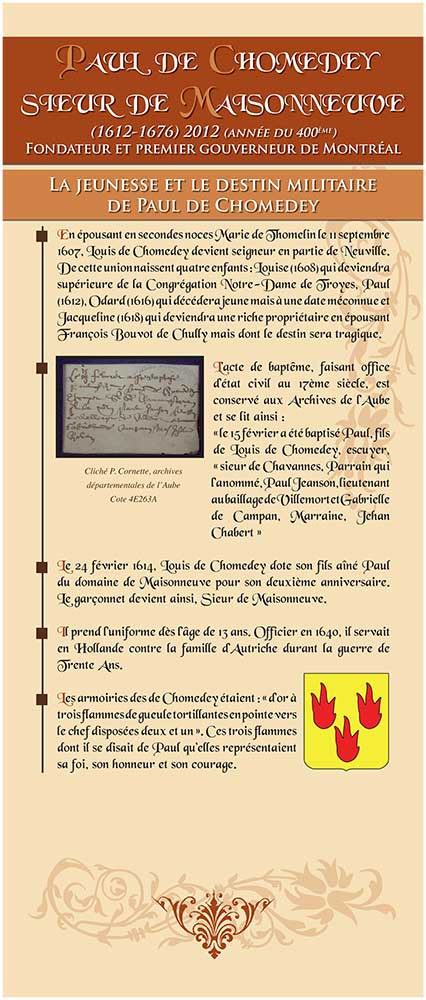 PAUL DE CHOMEDEY
SIEUR DE MAISONNEUVE
(1612-1676) 2012 (ANNÉE DU 400ÈME)
FONDATEUR ET PREMIER GOUVERNEUR DE MONTRÉAL
LA JEUNESSE ET LE DESTIN MILITAIRE
DE PAUL DE CHOMEDEY
En épousant en secondes noces Marie de Thomelin le 11 septembre
1607, Louis de Chomedey devient seigneur en partie de Neuville.
De cette union naissent quatre enfants : Louise (1608) qui deviendra
supérieure de la Congrégation Notre-Dame de Troyes, Paul
(1612), Odard (1616) qui décédera jeune mais à une date méconnue et
Jacqueline (1618) qui deviendra une riche propriétaire en épousant
François Bouvot de Chully mais dont le destin sera tragique.
L'acte de baptême, faisant office
d'état civil au 17ème siècle, est
conservé aux Archives de l'Aube
et se lit ainsi :
« le 15 février a été baptisé Paul, fils
de Louis de Chomedey, escuyer,
« sieur de Chavannes, Parrain qui
l'a nommé, Paul Jeanson, lieutenant
au baillage de Villemort et Gabrielle
de Campan, Marraine, Jehan
Chabert »
Cliché P. Cornette, archives
départementales de l'Aube
Cote 4E263A
Le 24 février 1614, Louis de Chomedey dote son fils aîné Paul
du domaine de Maisonneuve pour son deuxième anniversaire.
Le garçonnet devient ainsi, Sieur de Maisonneuve.
Il prend l'uniforme dès l'âge de 13 ans. Officier en 1640, il servait
en Hollande contre la famille d'Autriche durant la guerre de
Trente Ans.
Les armoiries des de Chomedey étaient : « d'or à
trois flammes de gueule tortillantes en pointe vers
le chef disposées deux et un ». Ces trois flammes
dont il se disait de Paul qu'elles représentaient
sa foi, son honneur et son courage.